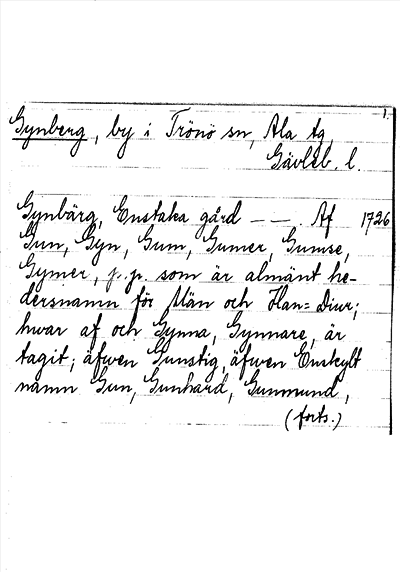 1.
Gynberg, by i Trönö sn, Ala tg
Gävleb. l.
Gynbärg, Enstaka gård — — . Af 1726
Gun, Gyn, Gum, Gumer, Gumse,
Gymer, p.p. som är almänt he-
dersnamn för Män och Han-Diur;
hwar af och Gynna, Gynnare, är
tagit; äfwen Gunstig, äfwen Enskylt
namn Gun, Gunhard, Gunmund,
(forts.)